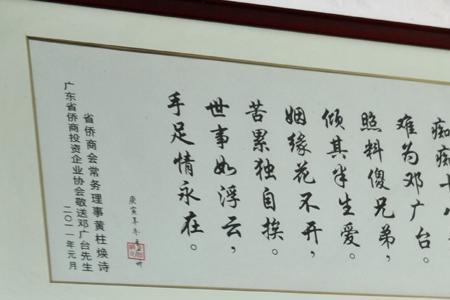 痴痴十八
难为邓广台。
照料傻兄弟，
倾其半生爱。
姻缘花不开，
苦累独自挨。
世事如浮云，
手足情永在。
庚寅年冬
省侨商会常务理事黄柱焕诗
广东省侨商投资企业协会敬送邓广台先生
二〇一一年元月